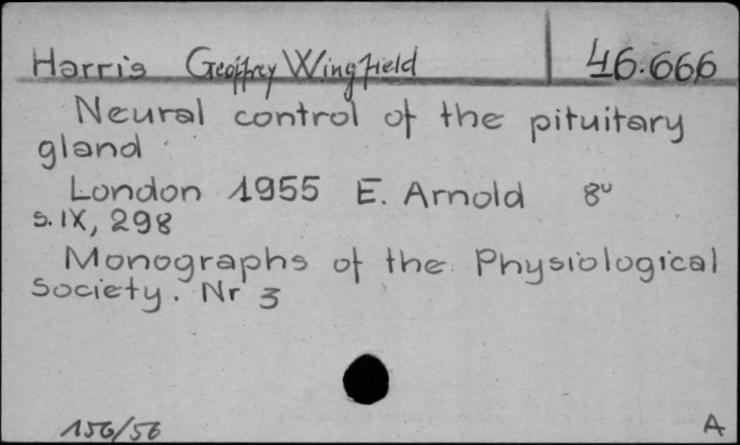 Harris Geoffrey Wingfield 46.666
Neural control of the pituitary
gland
London 1955 E. Arnold 8°
s. IX, 298
Monographs of the Physiological
Society. Nr 3
156/56 A